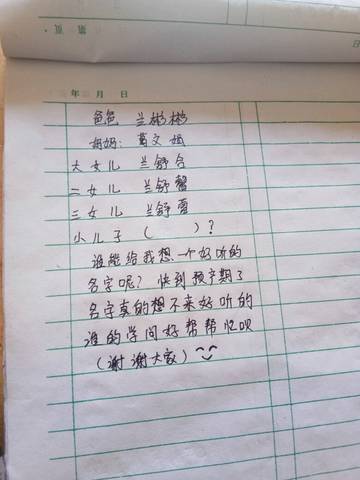 年 月 日
爸爸 兰彬彬
妈妈: 葛文
大女儿 兰舒
二女儿 兰舒馨
三女儿 兰舒
小儿子 ( )?
谁能给我想一个好听的
名字呢? 快到预产期了
名字真的想不来好听的
谁的学问好帮帮忙呗
(谢谢大家)